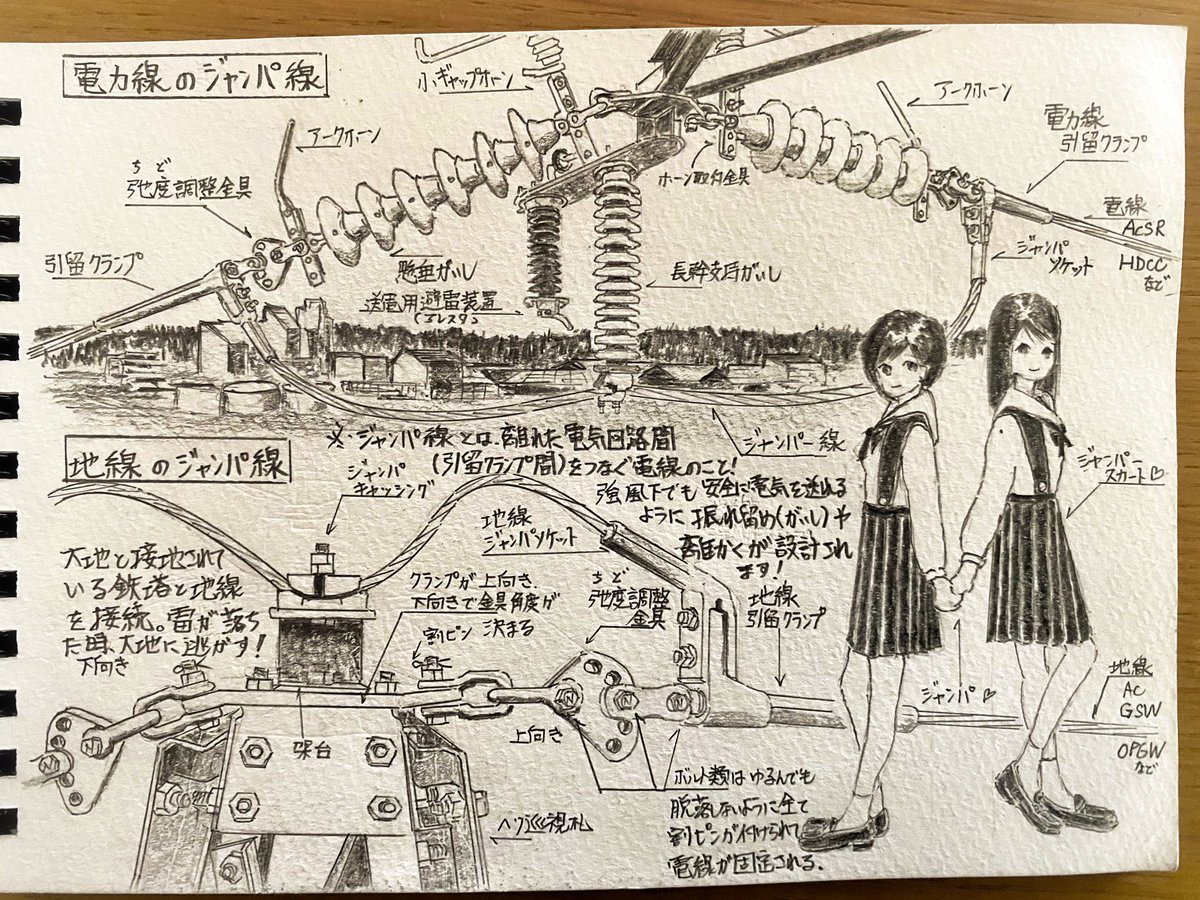 電力線のジャンパ線
小ギャップホーン
アークホーン
アークホーン
電力線
引留クランプ
ちど
弛度調整金具
ホーン取付金具
電線
ACSR
HDCC
など
引留クランプ
懸垂がいし
長幹支持がいし
ジャンパ
ソケット
送電用避雷装置
(アレスタ)
※ジャンパ線とは、離れた電気回路間
(引留クランプ間)をつなぐ電線のこと!
強風下でも安全に電気を送れる
ように振れ留め(がいし)や
離かくが設計され
ます!
ジャンパー線
地線のジャンパ線
ジャンパ
キャッシング
地線
ジャンパソケット
ジャンパー
スカート♡
大地と接地されて
いる鉄塔と地線
を接続。雷が落ち
た時、大地に逃がす!
下向き
クランプが上向き、
下向きで金具角度が
決まる
割ピン
ちど
弛度調整
金具
地線
引留クランプ
ジャンパ♡
地線
AC
GSW
OPGW
など
架台
上向き
ヘリ巡視札
ボルト類はゆるんでも
脱落ないように全て
割ピンが付けられて
電線が固定される。